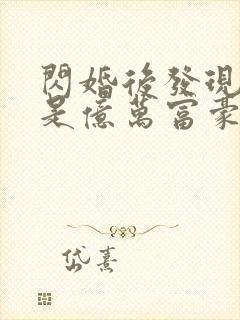 閃婚後發現
是億萬富豪
岱熹